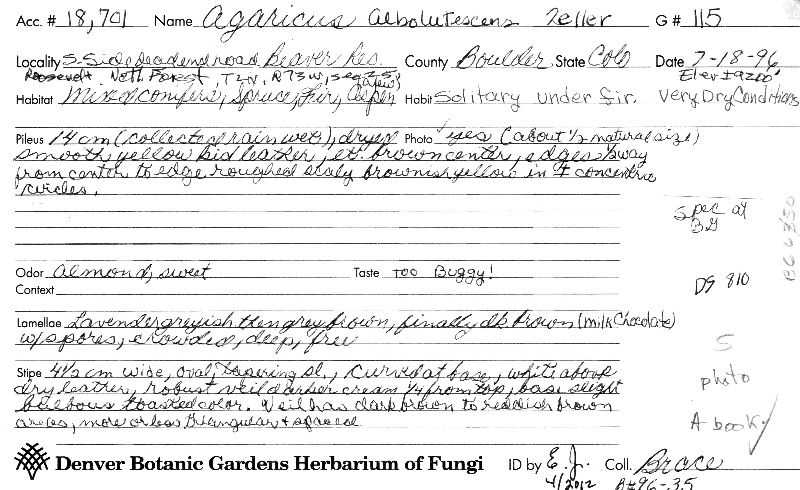 Acc. # 18,701 Name Agaricus albolutescens Zeller G# 115
Locality S. Side deadend road Beaver Res. County Boulder State Colo Date 7-18-96
Roosevelt Natl. Forest, T2N, R73W, seg 25, Elev ±9200'
Habitat Mixed conifers, spruce, fir, (a few) Aspen Habit Solitary under fir. Very Dry Conditions
Pileus 14 cm (collected rain wet), dryed Photo yes (about ½ natural size)
smooth, yellow kid leather, lt. brown center, edges ½ way
from center to edge roughed scaly brownish yellow in ± concentric
circles.
Spec at
BG
Odor almond, sweet Taste too Buggy!
Context
DS 810
Lamellae Lavender greyish then grey brown, finally dk brown (milk Chocolate)
w/spores, crowded, deep, free
S
photo
A book
Stipe 4½ cm wide, oval, tapering sl., curved at base, white above
dry leather, robust veil darker cream ¼ from top, base slight
bulbous toasted color. Veil has dark brown to reddish brown
areas, more or less triangular & spaced
Denver Botanic Gardens Herbarium of Fungi ID by E.J. Coll. Brace
4/2012 B#96-35